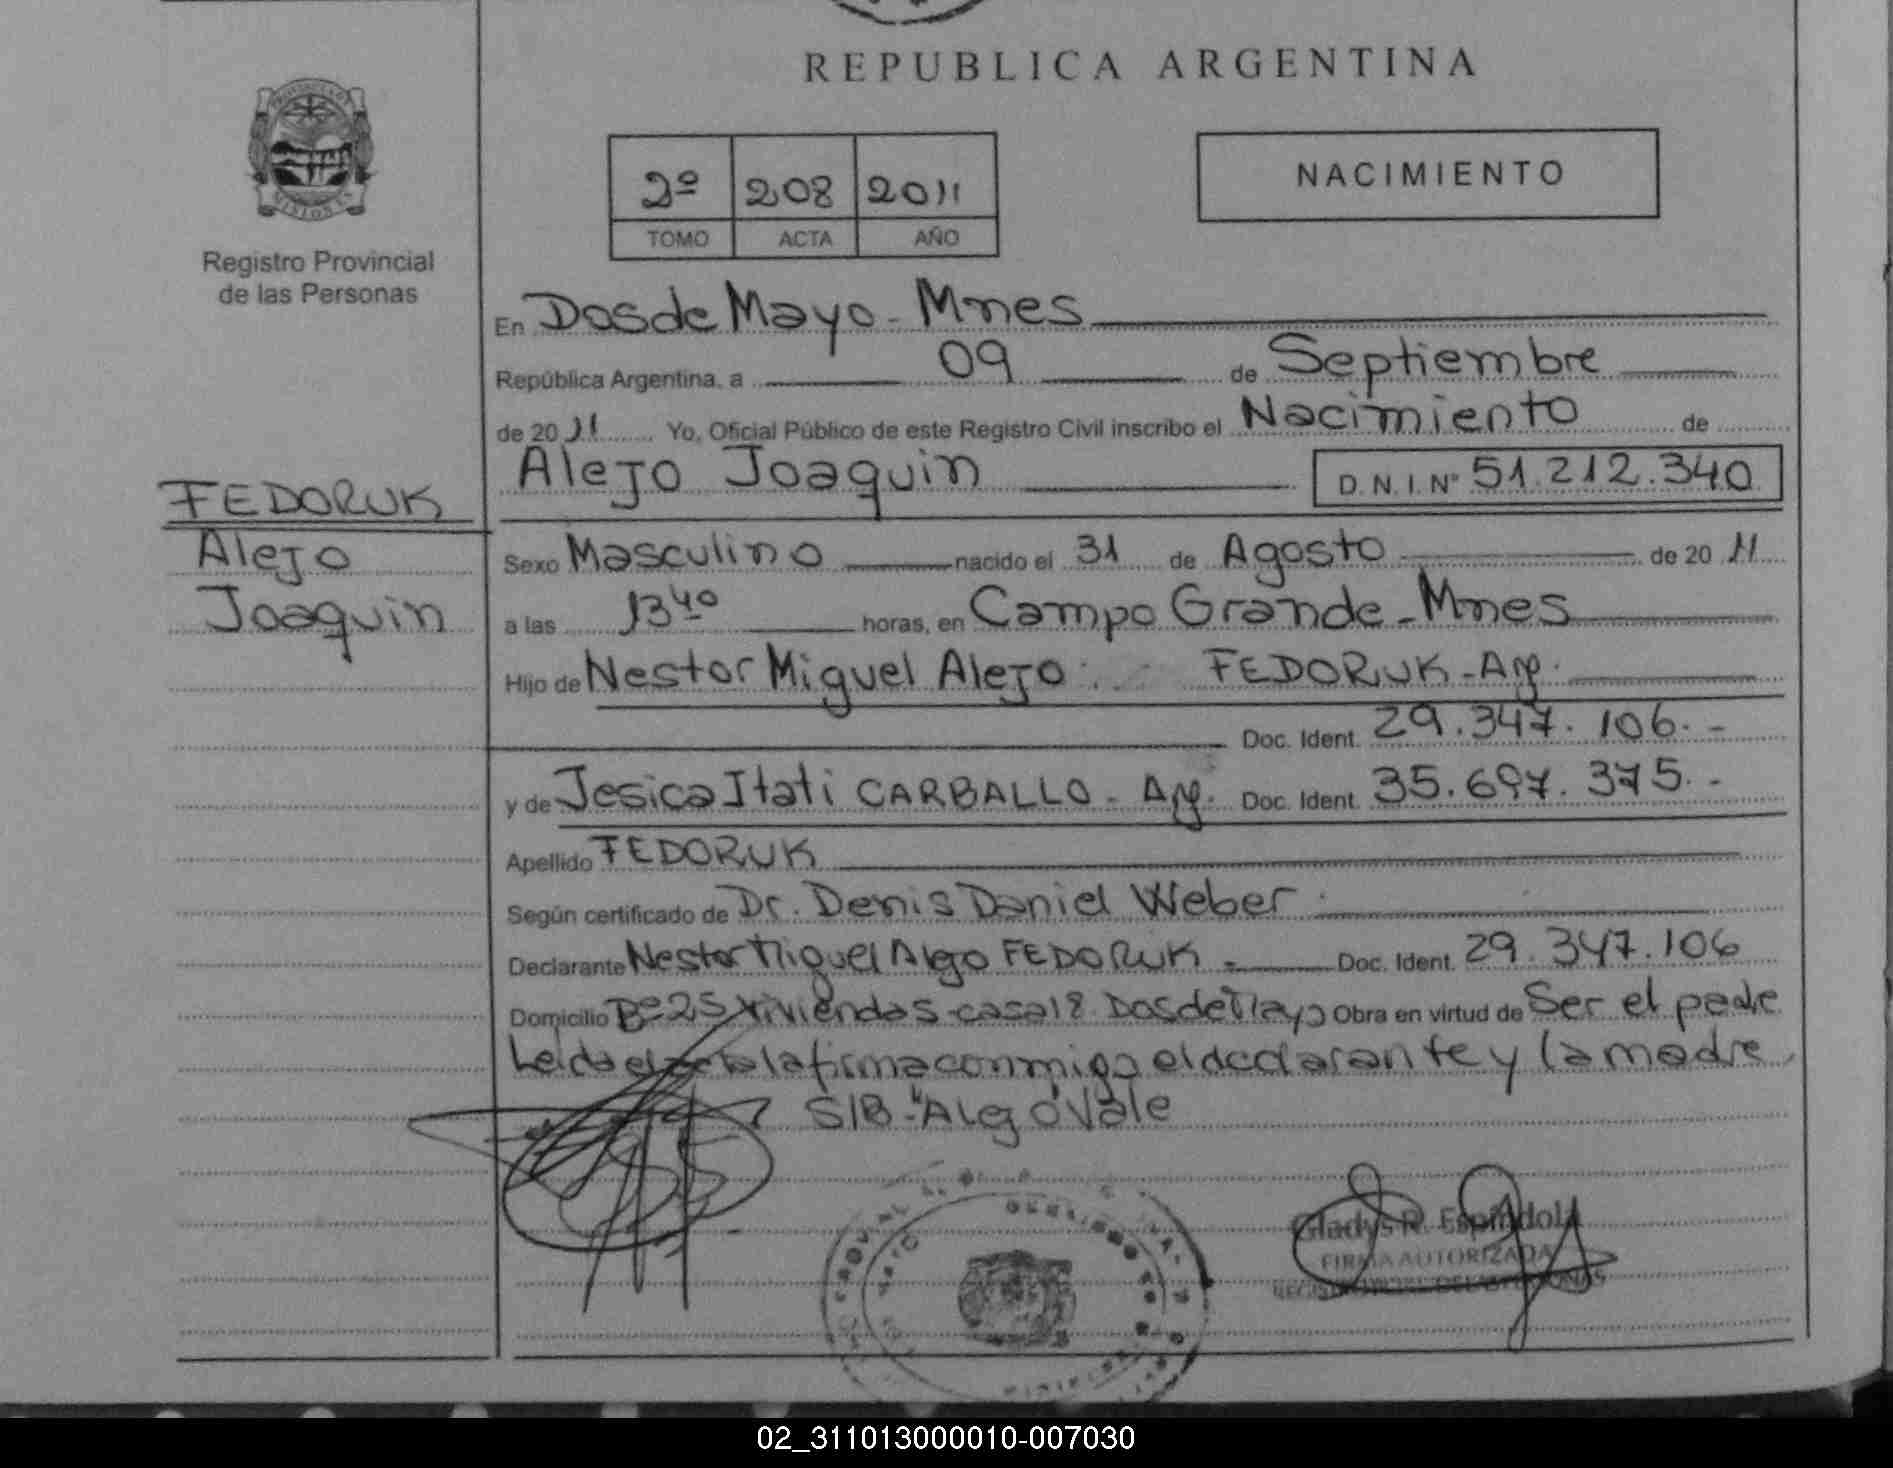 REPUBLICA ARGENTINA
2º 208 2011
TOMO ACTA AÑO
NACIMIENTO
Registro Provincial
de las Personas
En Dos de Mayo - Mnes
República Argentina, a 09 de Septiembre
de 2011 Yo, Oficial Público de este Registro Civil inscribo el Nacimiento de
Alejo Joaquin D.N.I. Nº 51.212.340
FEDORUK
Alejo
Joaquin
Sexo Masculino nacido el 31 de Agosto de 2011
a las 13 40 horas, en Campo Grande - Mnes
Hijo de Nestor Miguel Alejo FEDORUK - Arg.
Doc. Ident. 29.347.106.-
y de Jesica Itati CARBALLO - Arg. Doc. Ident. 35.697.375.-
Apellido FEDORUK
Según certificado de Dr. Denis Daniel Weber
Declarante Nestor Miguel Alejo FEDORUK - Doc. Ident. 29.347.106
Domicilio Bº 25 viviendas casa 18 Dos de Mayo Obra en virtud de Ser el padre
Leida el acta la firma conmigo el declarante y la madre
S/B "Alejo" Vale
Gladys R. Espindola
FIRMA AUTORIZADA
02_311013000010-007030